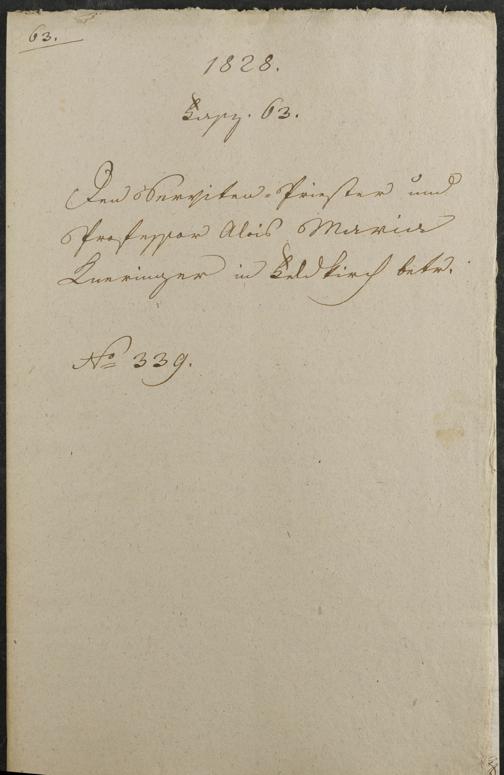 63.
1828.
Fasz. 63.
Den Serviten-Priester und
Professor Alois Maria
in Feldkirch betr.
No 339.